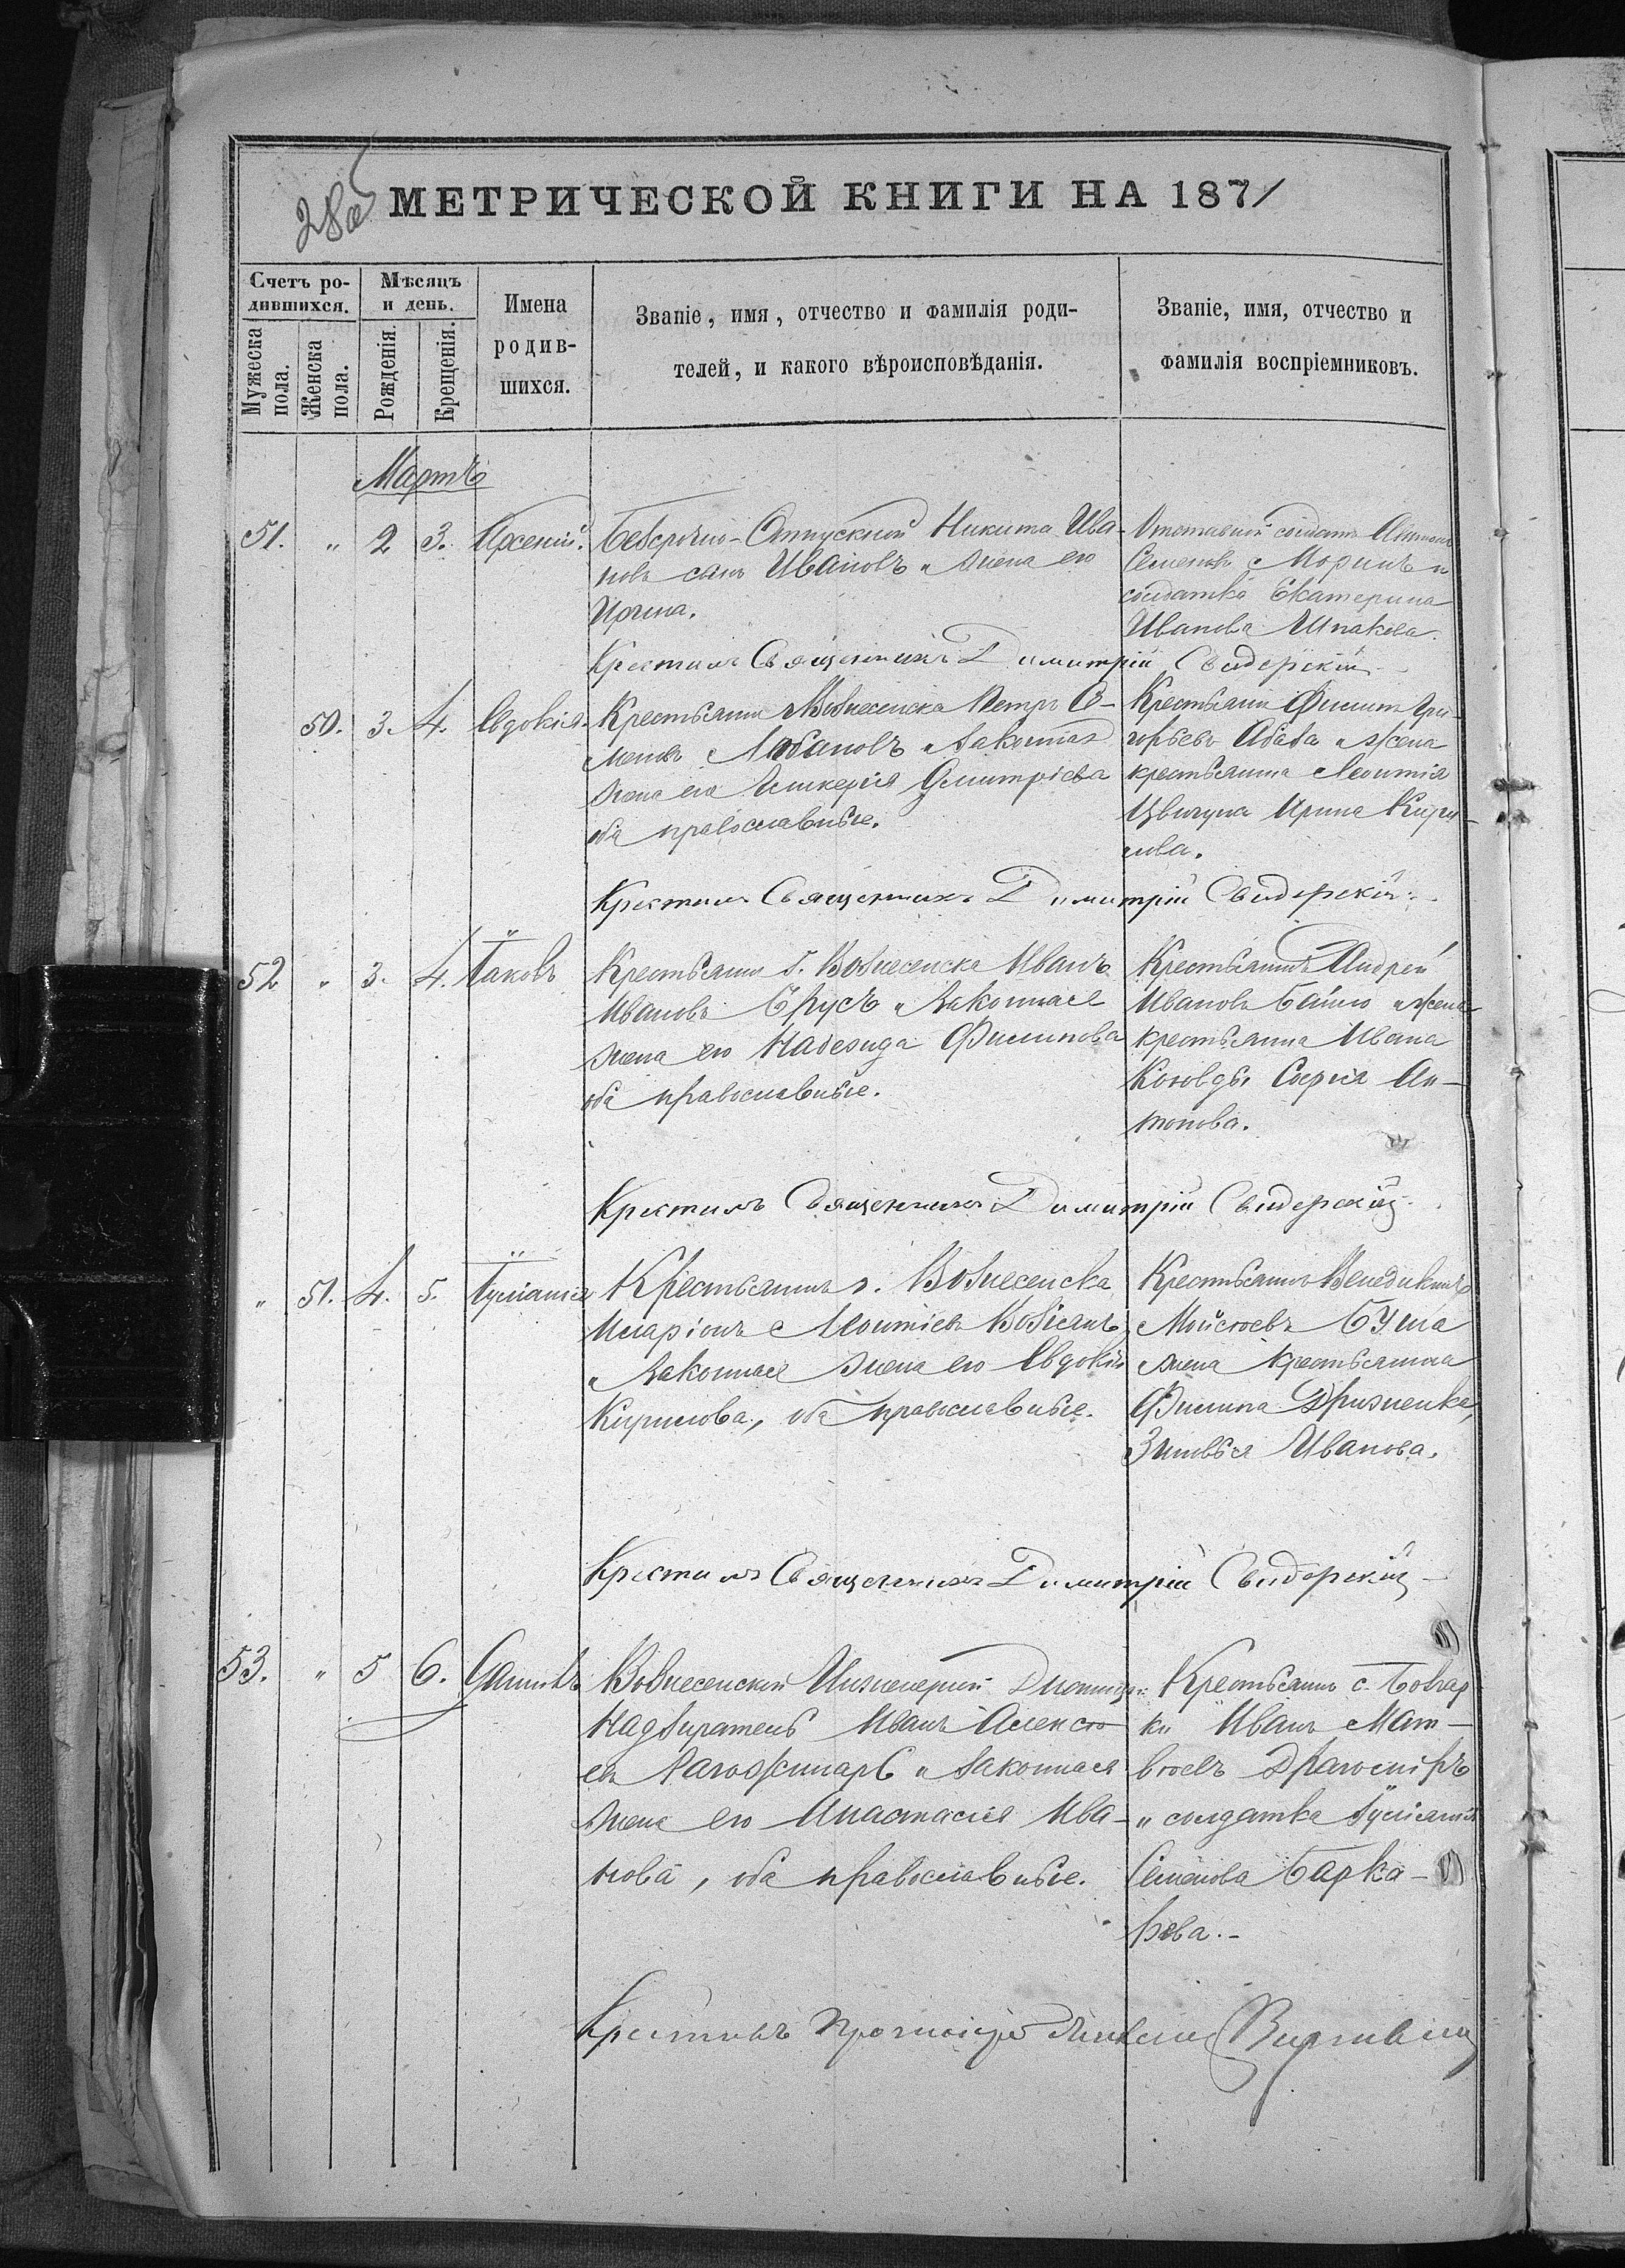 280
МЕТРИЧЕСКОЙ КНИГИ НА 1871
Счетъ родившихся.
Мужеска пола.
Женска пола.
Мѣсяцъ и день.
Рожденія.
Крещенія.
Имена родившихся.
Званіе, имя, отчество и фамилія родителей, и какого вѣроисповѣданія.
Званіе, имя, отчество и фамилія воспріемниковъ.
Мартъ
51. " 2 3. Арсеній.
Безсрочно-Отпускной Никита Ива-
новъ сынъ Ивановъ и жена его
Ирина.
Отставной солдатъ Антонъ
Семеновъ Моринъ и
солдатка Екатерина
Иванова Шпакова.
Крестилъ Священникъ Димитрій Свидерскій
50. 3. 4. Евдокія.
Крестьянинъ г. Вознесенска Петръ Се-
меновъ Лобановъ и законная
жена его Гликерія Димитріева
оба православные.
Крестьянинъ Филиппъ Гри-
горьевъ Абаза и жена
крестьянина Леонтія
Цвигуна Ирина Кири-
лова.
Крестилъ Священникъ Димитрій Свидерскій.
52 " 3. 4. Іаковъ
Крестьянинъ г. Вознесенска Иванъ
Ивановъ Брусъ и законная
жена его Надежда Филипова
оба православные.
Крестьянинъ Андрей
Ивановъ Байло и жена
крестьянина Ивана
Коговды Софія Ан-
тонова.
Крестилъ Священникъ Димитрій Свидерскій.
" 51. 4. 5. Іуліанія
Крестьянинъ г. Вознесенска
Иларіонъ Леонтіевъ Возіянъ
и законная жена его Евдокія
Кирилова, оба православные.
Крестьянинъ Венедиктъ
Мойсѣевъ Буша
жена крестьянина
Филипа Дризненка,
Зиновья Иванова.
Крестилъ Священникъ Димитрій Свидерскій
53. " 5 6. Даніилъ
Вознесенской Инженерной Дистанціи
Надзиратель Иванъ Алексѣ-
евъ и законная
жена его Анастасія Ива-
нова, оба православные.
Крестьянинъ с. Болгар-
ки Иванъ Мат-
вѣевъ Драгоміръ
и солдатка Іуліанія
Семенова Барка-
рева.
Крестилъ Протоіерей